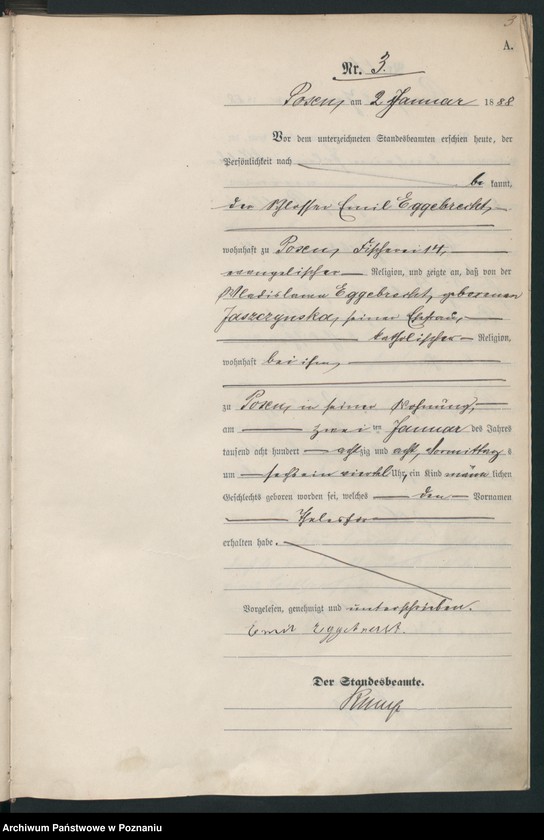 3
A.
Nr. 3.
Posen, am 2 Januar 1888
Vor dem unterzeichneten Standesbeamten erschien heute, der
Persönlichkeit nach
be kannt,
der Schlosser Emil Eggebrecht,
wohnhaft zu Posen, Fischerei 14,
evangelischer Religion, und zeigte an, daß von der
Wladislawa Eggebrecht, geborenen
Jaszczynska, seiner Ehefrau,
katholischer Religion,
wohnhaft bei ihm,
zu Posen, in seiner Wohnung,
am zwei ten Januar des Jahres
tausend acht hundert achtzig und acht, Vormittags
um sechs ein viertel Uhr, ein Kind männlichen
Geschlechts geboren worden sei, welches den Vornamen
erhalten habe.
Vorgelesen, genehmigt und unterschrieben.
Emil Eggebrecht.
Der Standesbeamte.
Archiwum Państwowe w Poznaniu